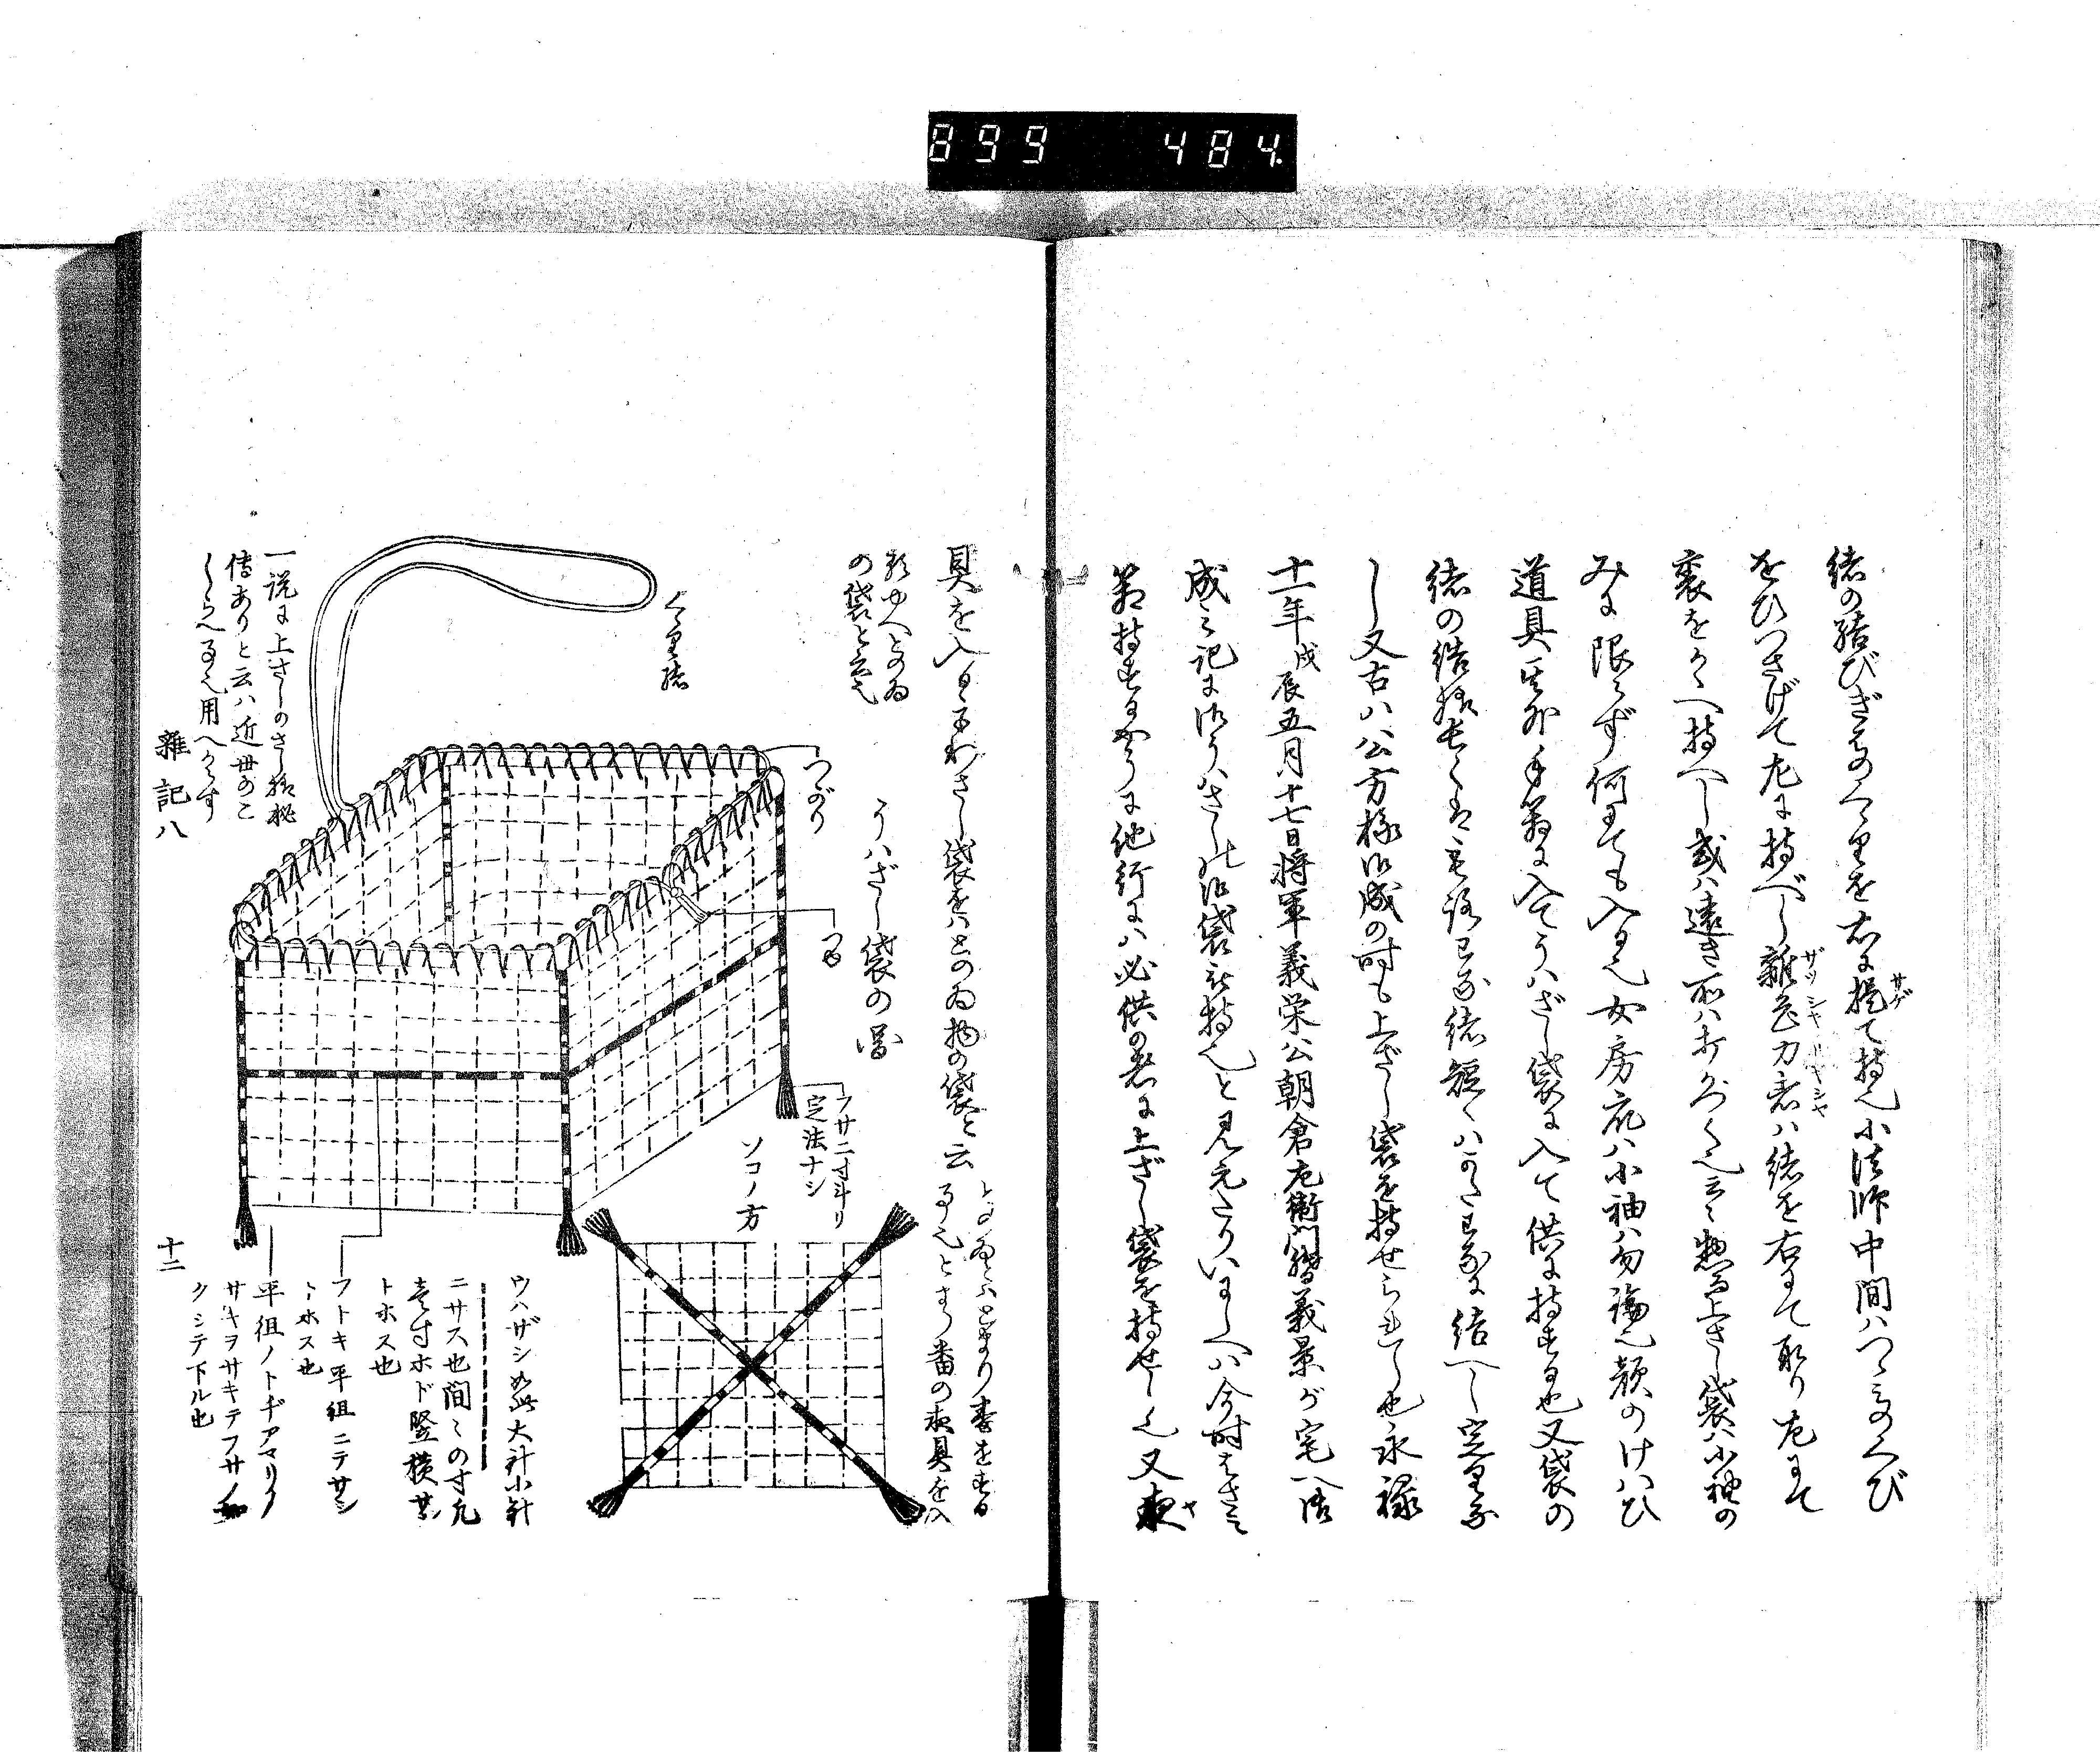 899 484
緒の結びぎはのくゝりを右に提て持也小法師中間ハつゝみのくび
サゲ
をひつさげて左に持べし雑色力者ハ緒を右にて取り左にて
ザツシキ リキシヤ
裏をかゝへ持へし或ハ遠き所ハ
惣而上さし袋ハ小袖の
みに限らず何にても入る也女房衆ハ小袖ハ勿論也顔のけハひ
道具其外手箱に入てうハざし袋に入て供に持する也又袋の
緒の結様長く
緒短くハ
に結へし
し又古ハ公方様御成の時も上ざし袋を持せられし也永禄
十一年戊辰五月十七日将軍義栄公朝倉左衛門督義景が宅へ御
成之記に御うハさしの御袋を持也と見えたりいにしへハ今時はさミ
箱持するやうに他行にハ必供の者に上ざし袋を持せし也又夜
ヤ
具を入るゝうわさし袋をハとのゐ物の袋と云
とのゐとハとまり番をする
事也とまり番の夜具を入
る故にとのゐ
の袋と云也
うハざし袋の図
くゝり緒
つがり
つゆ
フサ二寸斗リ
定法ナシ
ソコノ方
ウハザシ如此大針小針
ニサス也間〻の寸尺
壱寸ホド竪横共
トホス也
フトキ平組ニテサシ
トホス也
平組ノトヂアマリノ
サキヲサキテフサノ如
クシテ下ル也
一説に上さしのさし様秘
傳ありと云ハ近世のこ
しらへ事也用へからす
雑記八
十二